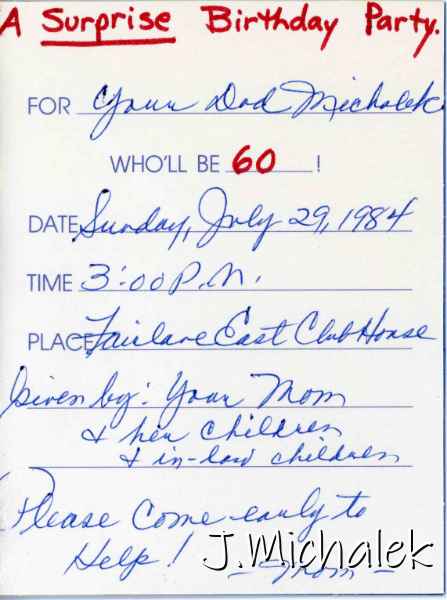 A Surprise Birthday Party.
FOR Your Dad Michalek
WHO'LL BE 60 !
DATE Sunday, July 29, 1984
TIME 3:00 P.M.
PLACE Fairlane East Club House
Given by: Your Mom
& her children
& in-law children
Please Come early to
Help! - Mom -
J.Michalek